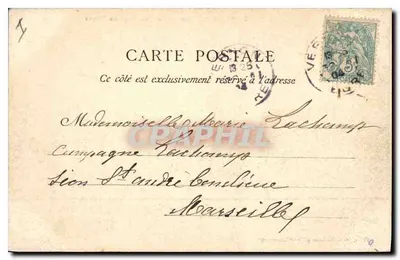 CARTE POSTALE
Ce côté est exclusivement réservé à l'adresse
Mademoiselle Marie Lachamp
Campagne Lachamp
St André
Marseille
CPAPHIL